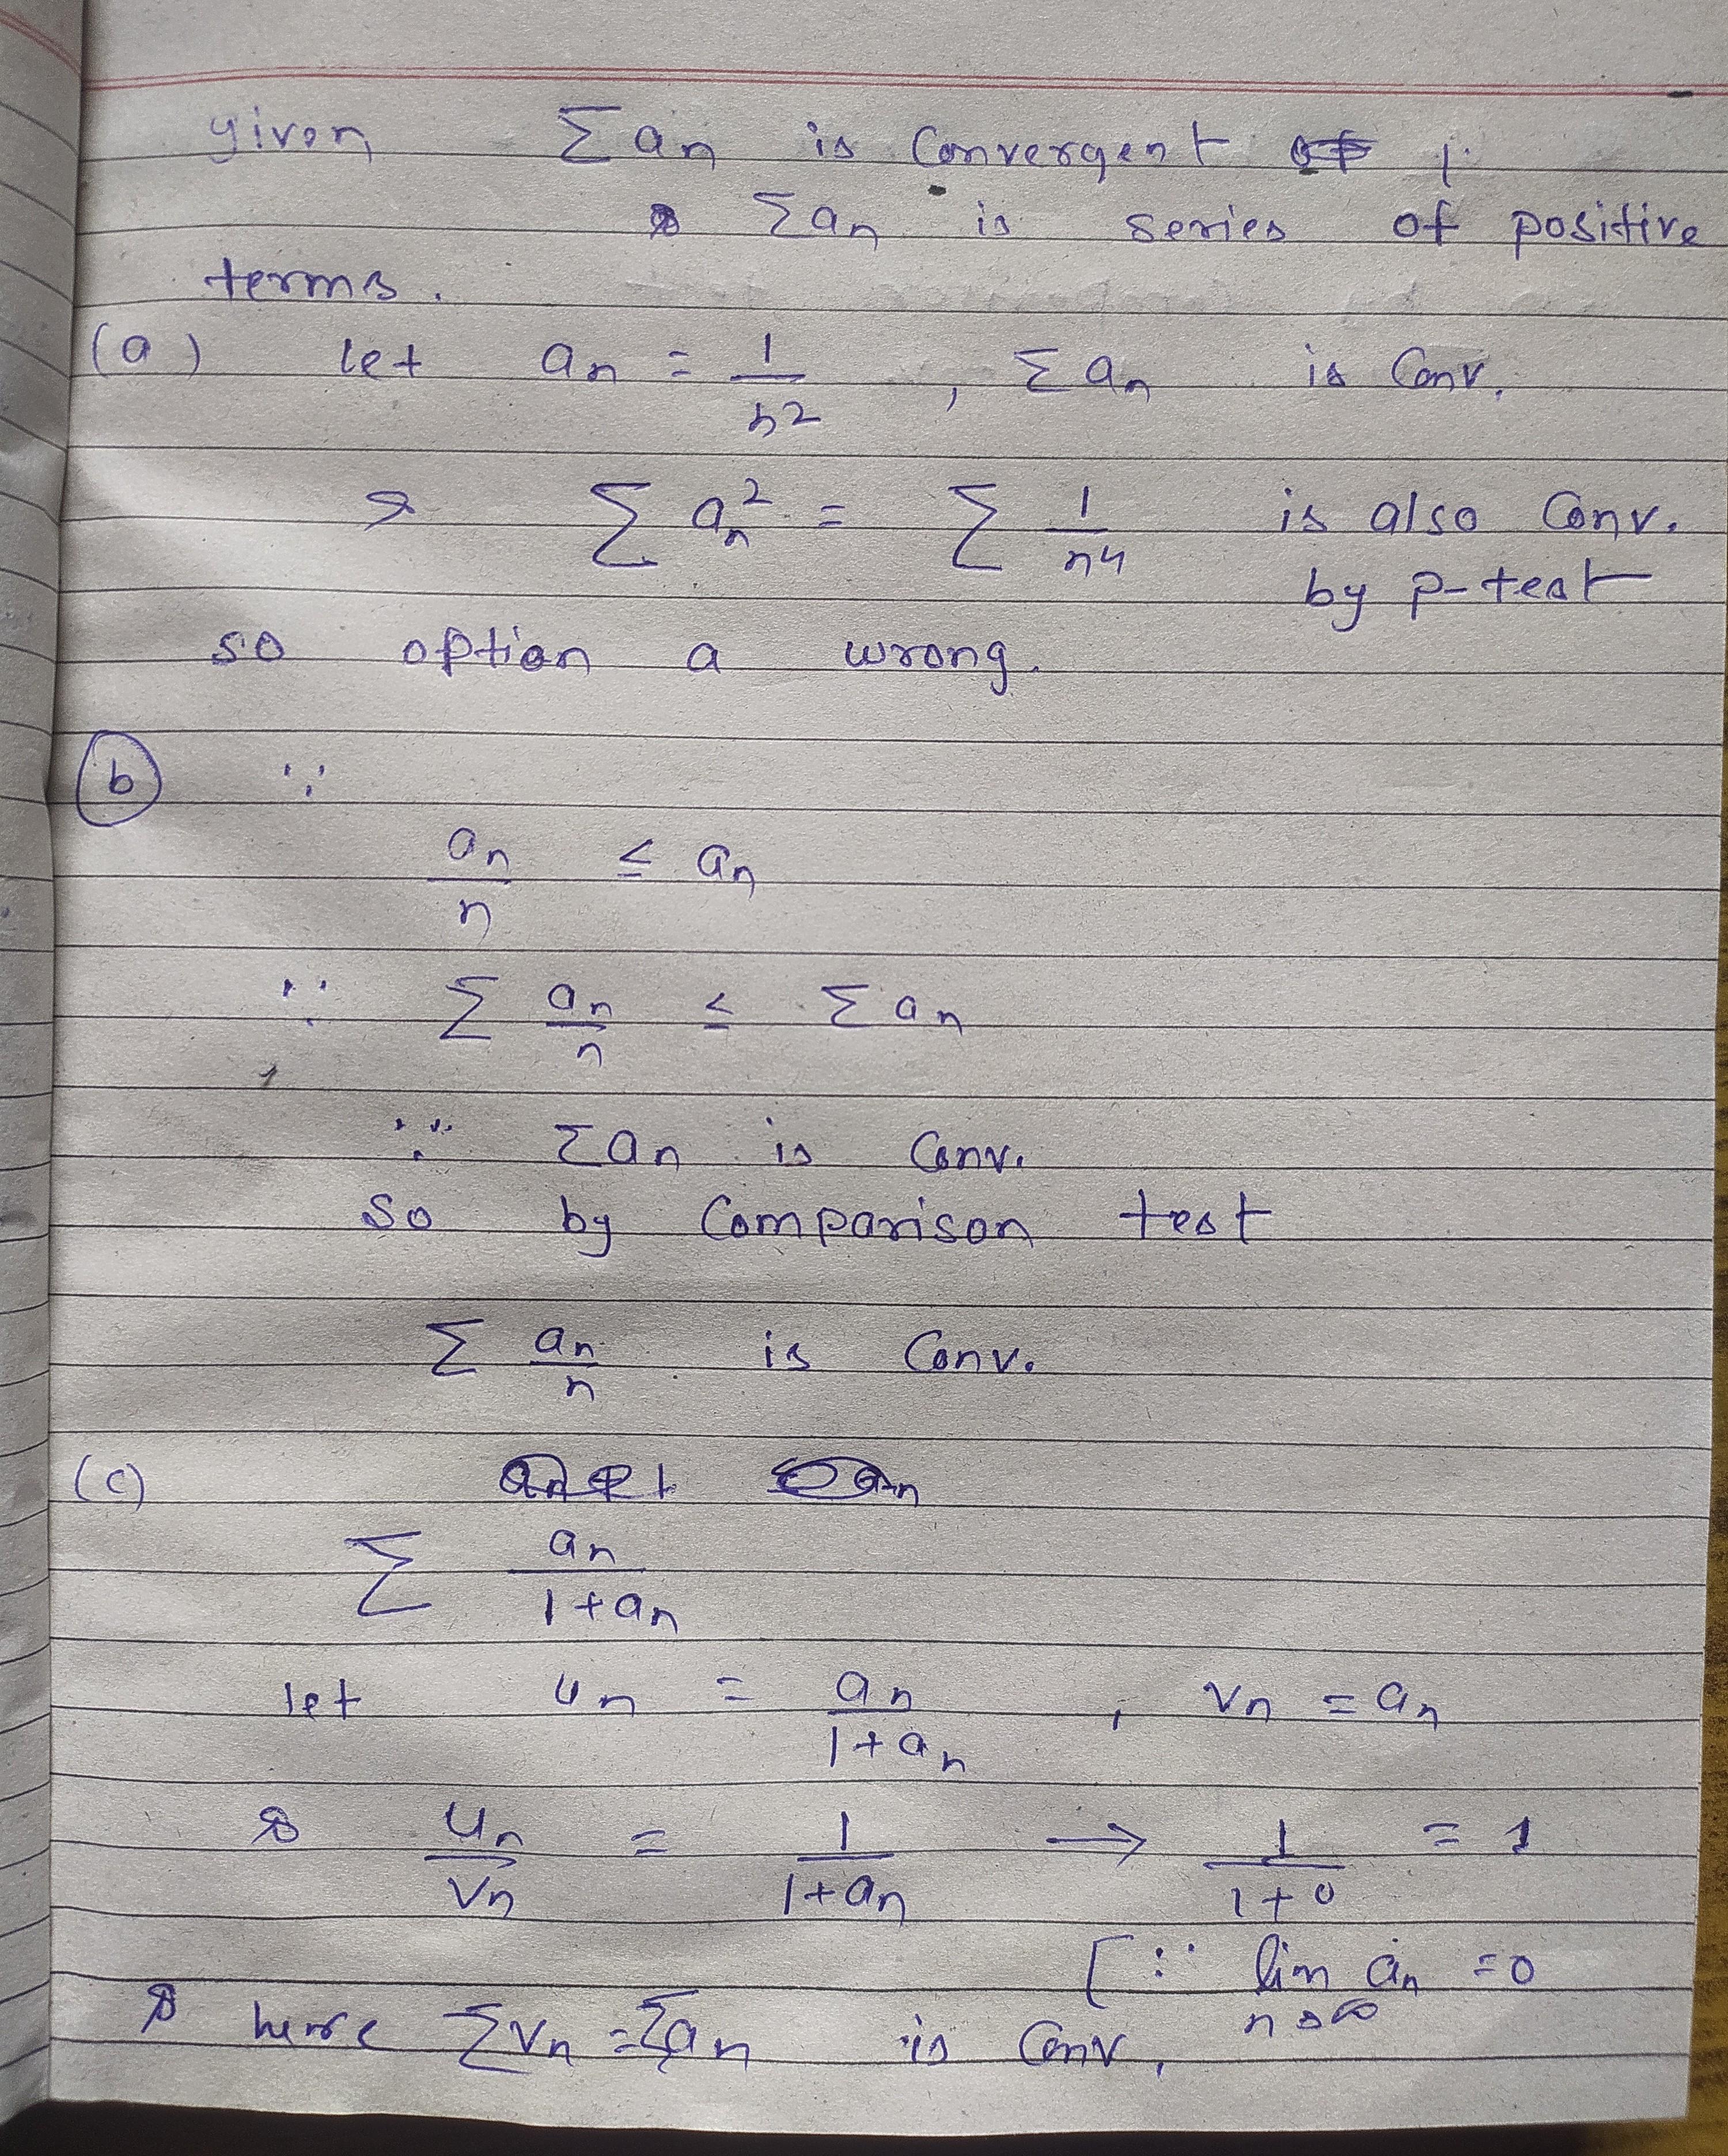 given Σ an is convergent
Σan is series of positive
terms.
(a) let an = 1/n2 , Σ an is Conv.
⇒ Σ an^2 = Σ 1/n4 is also Conv.
by p-test
so option a wrong.
(b) ∵
an/n ≤ an
∵ Σ an/n ≤ Σ an
∵ Σan is Conv.
So by Comparison test
Σ an/n is Conv.
(c)
Σ an/1+an
let un = an/1+an , vn = an
⇒ un/vn = 1/1+an → 1/1+0 = 1
[∵ lim n→∞ an = 0
⇒ here Σvn = Σan is Conv.